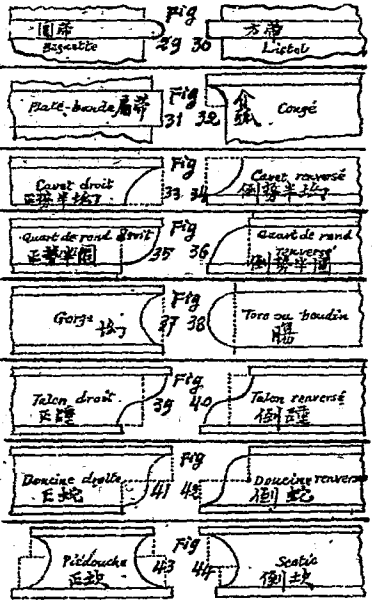 圓帶 Fig 方帶
Baguette 29 30 Listel
Plate-bande 扁帶 Fig Congé
31 32
Fig
Cavet droit 33 34 Cavet renversé
正勢半坳 倒勢半坳
Fig
Quart de rond droit 35 36 Quart de rond renversé
正勢半圓 倒勢半圓
Fig
Gorge 坳 37 38 Tore ou boudin
Fig
Talon droit 39 40 Talon renversé
正踵 倒踵
Fig
Doucine droite 41 42 Doucine renversé
正蛇 倒蛇
Fig
Piédouche 43 44 Scotie